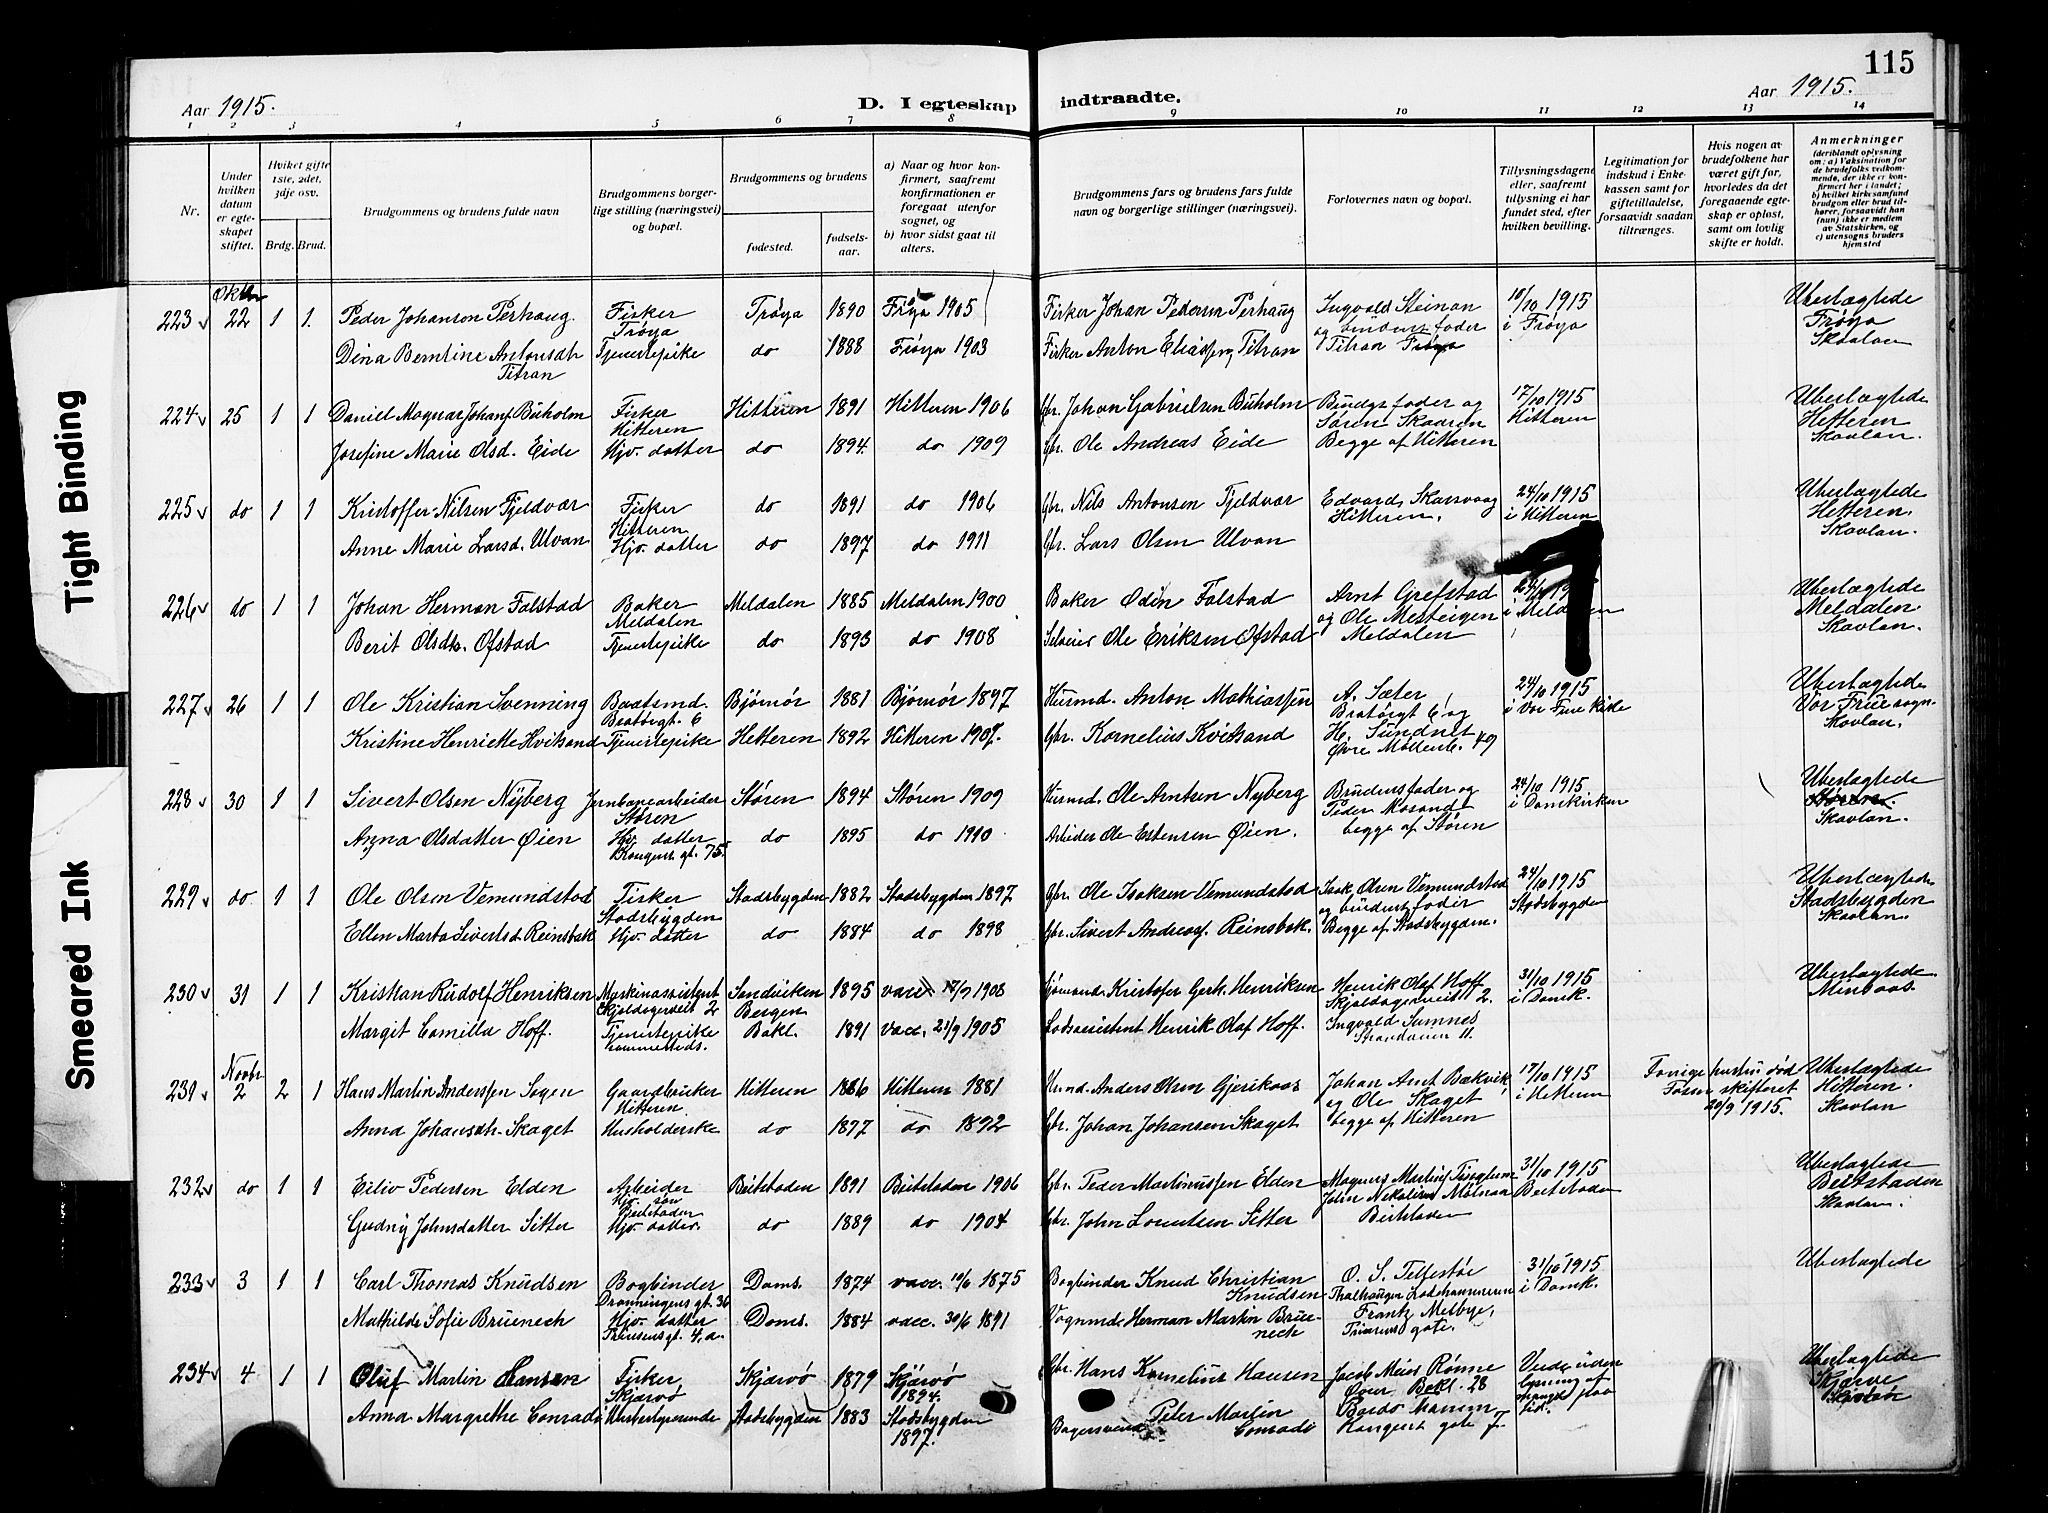 115
Aar 1915.
D. I egteskap indtraadte.
Aar 1915.
1 2 3 4 5 6 7 8 9 10 11 12 13 14
Nr.
Under hvilken datum er egteskapet stiftet.
Hvilket gifte 1ste, 2det, 3dje osv.
Brdg. Brud.
Brudgommens og brudens fulde navn
Brudgommens borgerlige stilling (næringsvei) og bopæl.
Brudgommens og brudens
fødested.
fødselsaar.
a) Naar og hvor konfirmert, saafremt konfirmationen er foregaat utenfor sognet, og
b) hvor sidst gaat til alters.
Brudgommens fars og brudens fars fulde navn og borgerlige stillinger (næringsvei).
Forlovernes navn og bopæl.
Tillysningsdagene eller, saafremt tillysning ei har fundet sted, efter hvilken bevilling.
Legitimation for indskud i Enkekassen samt for giftetilladelse, forsaavidt saadan tiltrænges.
Hvis nogen av brudefolkene har været gift før, hvorledes da det foregaaende egteskap er opløst, samt om lovlig skifte er holdt.
Anmerkninger
(deriblandt oplysning om: a) Vaksination for de brudefolks vedkommende, der ikke er konfirmert her i landet; b) hvilket kirkesamfund brudgom eller brud tilhører, forsaavidt han (hun) ikke er medlem av Statskirken, og c) utensogns bruders hjemsted
Tight Binding
Smeared Ink
223 22 1 1. Peder Johanson Perhaug. Fisker Frøya Frøya 1890 Frøya 1905 Fisker Johan Pedersen Perhaug Ingvald Steinan og brudens fader Titran Frøya 10/10 1915 i Frøya Uberlagtede Frøya Skavlan
Dina Berntine Antonsdtr Titran Tjenestepike do 1888 Frøya 1903 Fisker Anton Eliassen Titran
224 25 1 1 Daniel Magnus Johans. Buholm Fisker Hitteren Hitteren 1891 Hitteren 1906 Gbr. Johan Gabrielsen Buholm Brudgs fader og Søren Skaaren Begge af Hitteren 17/10 1915 Hitteren Uberlagtede Hitteren Skavlan.
Josefine Marie Olsd. Eide Hjv. datter do 1894. do 1909 Gbr. Ole Andreas Eide
225 do 1 1 Kristoffer Nilsen Fjeldvær Fisker Hitteren do 1891 do 1906 Gbr. Nils Antonsen Fjeldvær Edvard Skarsvaag Hitteren. 24/10 1915 i Hitteren Uberlagtede Hitteren. Skavlan.
Anne Marie Larsd. Ulvan Hjv. datter do 1897 do 1911 Gbr. Lars Olsen Ulvan
226 do 1 1 Johan Herman Falstad Baker Meldalen Meldalen 1885 Meldalen 1900 Baker Odin Falstad Arnt Grefstad og Ole Mesteigen Meldalen 24/10 i Meldalen Uberlagtede Meldalen Skavlan.
Berit Olsdtr. Øfstad Tjenestepike do 1893 do 1908 Selveier Ole Eriksen Øfstad
227 26 1 1 Ole Kristian Svenning Baatsmd. Brattørgt. 6 Bjørnør 1881 Bjørnør 1897 Husmd. Anton Mathiassen A. Sæter Bratørgt 6 og H. Sundnet Øvre Møllenb. 49 24/10 1915 i Vor Frue Kirke Uberlagtede Vor Frue sogn. Skavlan.
Kristine Henriette Hvitsand Tjenestepike Hitteren 1892 Hitteren 1907. Gbr. Kornelius Kvitsand
228 30 1 1 Sivert Olsen Nyberg Jernbanearbeider Støren Støren 1894 Støren 1909 Husmd. Ole Arntsen Nyberg Brudens fader og Peder Mosand begge af Støren 24/10 1915 i Domkirken Uberlagtede Støren. Skavlan.
Anna Olsdatter Øien Hjv. datter Kongens gt. 75. do 1895 do 1910 Arbeider Ole Estensen Øien.
229 do 1 1 Ole Olsen Vemundstad Fisker Stadsbygden Stadsbygden 1882 Stadsbygden 1897 Gbr. Ole Isaksen Vemundstad Isak Olsen Vemundstad og brudens fader Begge af Stadsbygden. 24/10 1915 Stadsbygden Uberlagtede Stadsbygden Skavlan.
Ellen Marta Sivertsd. Reinsbak Hjv. datter do 1884 do 1898 Gbr. Sivert Andreas. Reinsbak.
230 31 1 1 Kristian Rudolf Henriksen Maskinassistent Skjoldagerveit 2 Sandviken Bergen 1895 vacc. 1908 Sjømand Kristofer Gerh. Henriksen Henrik Olaf Hoff Skjoldagerveit 2. Ingvald Sumnes Strandveien 11. 31/10 1915 i Domk. Uberlagtede Minsaas.
Margit Camilla Hoff. Tjenestepike sammesteds. Bakl. 1891 vacc. 21/9 1905 Lodsassistent Henrik Olaf Hoff.
Novbr
231 2 2 1 Hans Martin Anderssen Søgen Gaardbruker Hitteren Hitteren 1866 Hitteren 1881 Husmd. Anders Olsen Gjersvaas Johan Arnt Bækvik og Ole Skaget begge af Hitteren 17/10 1915 i Hitteren Forrige hustru død Fosen skifteret 20/9 1915. Uberlagtede Hitteren. Skavlan
Anna Johansdtr. Skaget Husholderske do 1877 do 1892 Gbr. Johan Johansen Skaget
232 do 1 1 Eiliv Pedersen Elden Arbeider Hjv. søn Beitstaden Beitstaden 1891 Beitstaden 1906 Gbr. Peder Martinussen Elden John Nikolisen Molnaa Beitstaden 31/10 1915 Beitstaden Uberlagtede Beitstaden Skavlan.
Gudny Johnsdatter Sitter Hjv. datter. do 1889 do 1904 Gbr. John Lorentsen Sitter
233 3 1 1 Carl Thomas Knudsen Bogbinder Dronningens gt. 36 Doms. 1874 vacc. 10/6 1875 Bogbinder Knud Christian Knudsen O. S. Tellestøe Frantz Melbye, 31/10 1915 i Domk. Uberlagtede
Mathilde Sofie Bruenech Hjv. datter Prinsensgt. 4.a. Doms. 1884 vacc. 30/6 1891 Vognmd. Herman Martin Bruenech
234 4 1 1 Oluf Martin Hansen Fisker Skjærvø Skjærvø 1879 Skjærvø 1894. Gbr. Hans Kornelius Hansen Jacob Meier Rønne Øvre Bakl. 28 Bardo Hansen Kongens gate 7. Uberlagtede
Anna Margrethe Conradi Stadsbygden 1883 Stadsbygden 1897. Bagersvend Peter Martin Conradi